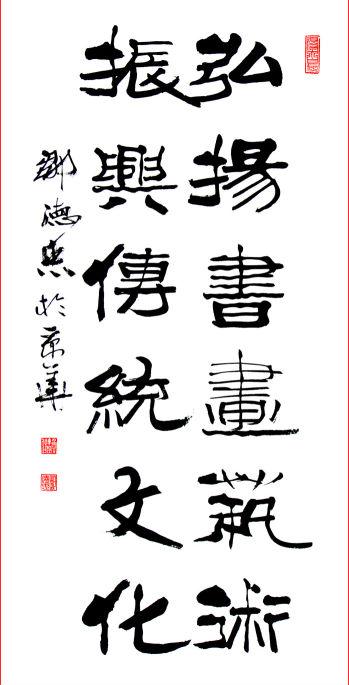 弘揚書畫藝術
振興傳統文化
德於京華